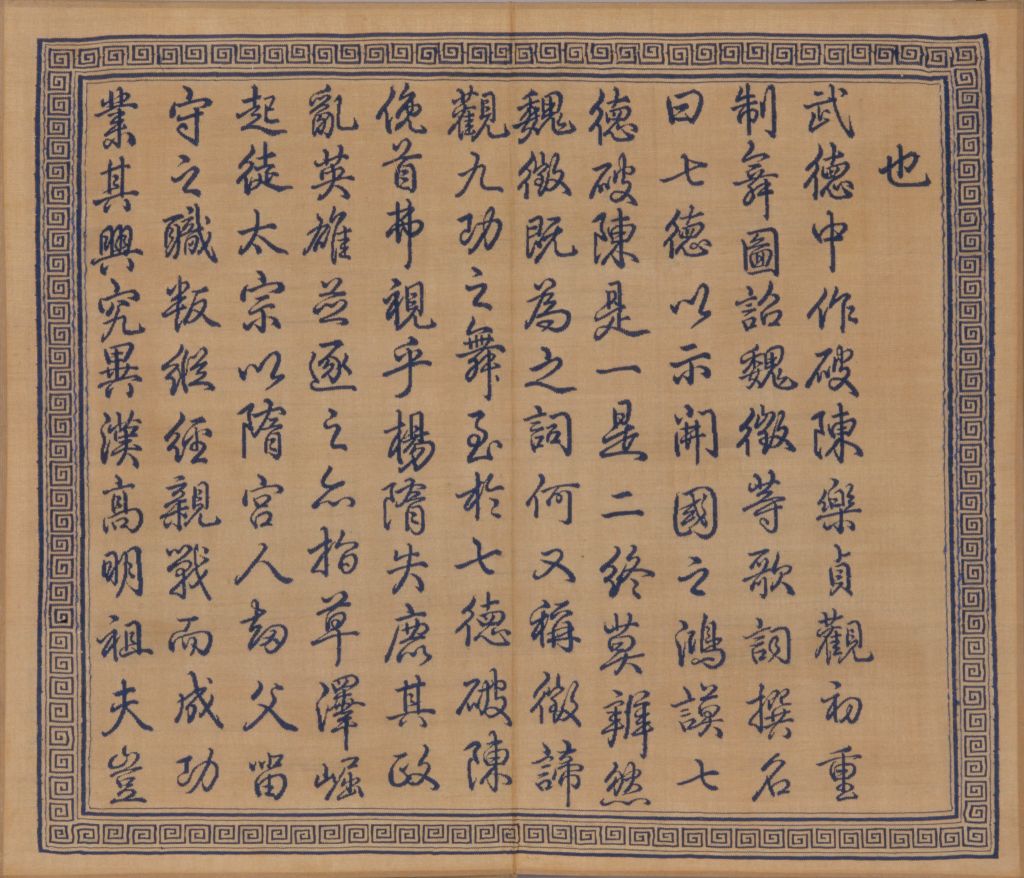 也
武德中作破陳樂貞觀初重
制舞圖詔魏徵等歌詞撰名
曰七德以示開國之鴻謨七
德破陳是一是二終莫辨然
魏徵既為之詞何又稱徵諦
觀九功之舞至於七德破陳
俛首弗視乎楊隋失鹿其政
亂英雄並逐之亦指草澤崛
起徒太宗以隋宮人劫父留
守之職叛縱經親戰而成功
業其興究異漢高明祖夫豈